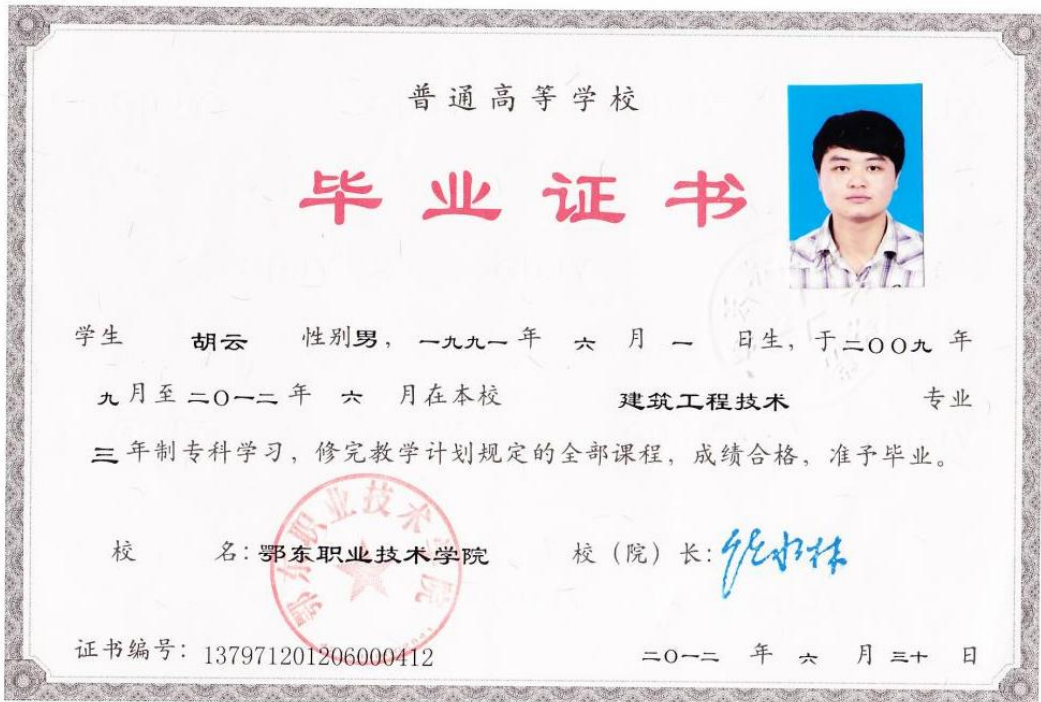 普通高等学校
毕业证书
学生 胡云 性别男，一九九一年 六 月 一 日生，于二〇〇九 年
九月至二〇一二年 六 月在本校 建筑工程技术 专业
三年制专科学习，修完教学计划规定的全部课程，成绩合格，准予毕业。
校 名：鄂东职业技术学院 校（院）长：
鄂东职业技术学院
证书编号：137971201206000412 二〇一二 年 六 月 三十 日